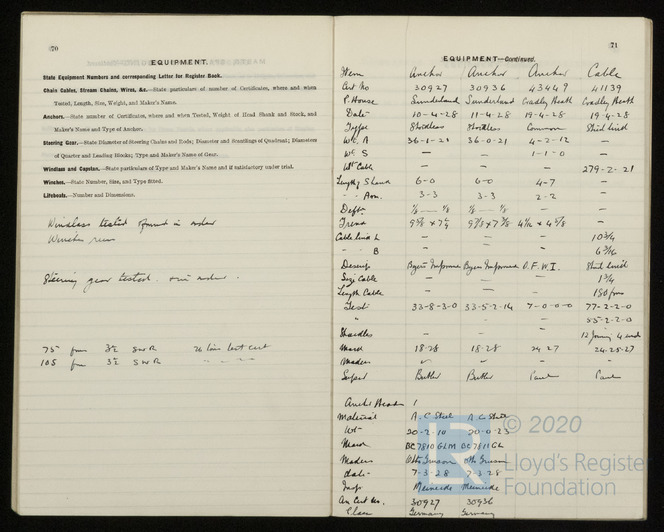 70
EQUIPMENT.
State Equipment Numbers and corresponding Letter for Register Book.
Chain Cables, Stream Chains, Wires, &c.—State particulars of number of Certificates, where and when
Tested, Length, Size, Weight, and Maker's Name.
Anchors.—State number of Certificates, where and when Tested, Weight of Head Shank and Stock, and
Maker's Name and Type of Anchor.
Steering Gear.—State Diameter of Steering Chains and Rods; Diameter and Scantlings of Quadrant; Diameters
of Quarter and Leading Blocks; Type and Maker's Name of Gear.
Windlass and Capstan.—State particulars of Type and Maker's Name and if satisfactory under trial.
Winches.—State Number, Size, and Type fitted.
Lifeboats.—Number and Dimensions.
Windlass tested found in order
Winches
Steering gear tested. order.
75 fms 3½ SWR
105 fms 3½ SWR
71
EQUIPMENT—Continued.
Item Anchor Anchor Anchor Cable
Cert No 30927 30936 43449 41139
P. House Sunderland Sunderland Cradley Heath Cradley Heath
Date 10-4-28 11-4-28 19-4-28 19-4-28
Type Stockless Stockless Common Stud link
Wt. A 36-1-21 36-0-21 4-2-12 —
Wt. S — — 1-1-0 —
Wt Cable 279-2-21
Length Shank 6-0 6-0 4-7
Arm. 3-3 3-3 2-2 —
Trend
Cable link L — — — 10¾
B
Descrip Byers Improved Byers Improved O.F.W.I. Stud link
Size Cable — — — 1¾
Length Cable — — — 150 fms
Test 33-8-3-0 33-5-2-14 7-0-0-0 77-2-2-0
55-2-2-0
Shackles — — —
Mark 18-28 18-28 24-27 24-25-27
Makers
Supt Butler Butler Paul Paul
Anchor Head
Material A. C Steel A. C Steel
Wt 20-2-10 20-0-23
Mark
Makers
date 7-3-28 7-3-28
Insp Meinecke Meinecke
An Cert No. 30927 30936
Place Germany Germany
© 2020
LR
Lloyd's Register
Foundation